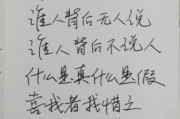 谁人背后无人说
谁人背后不说人
什么是真什么是假
喜我者我惜之